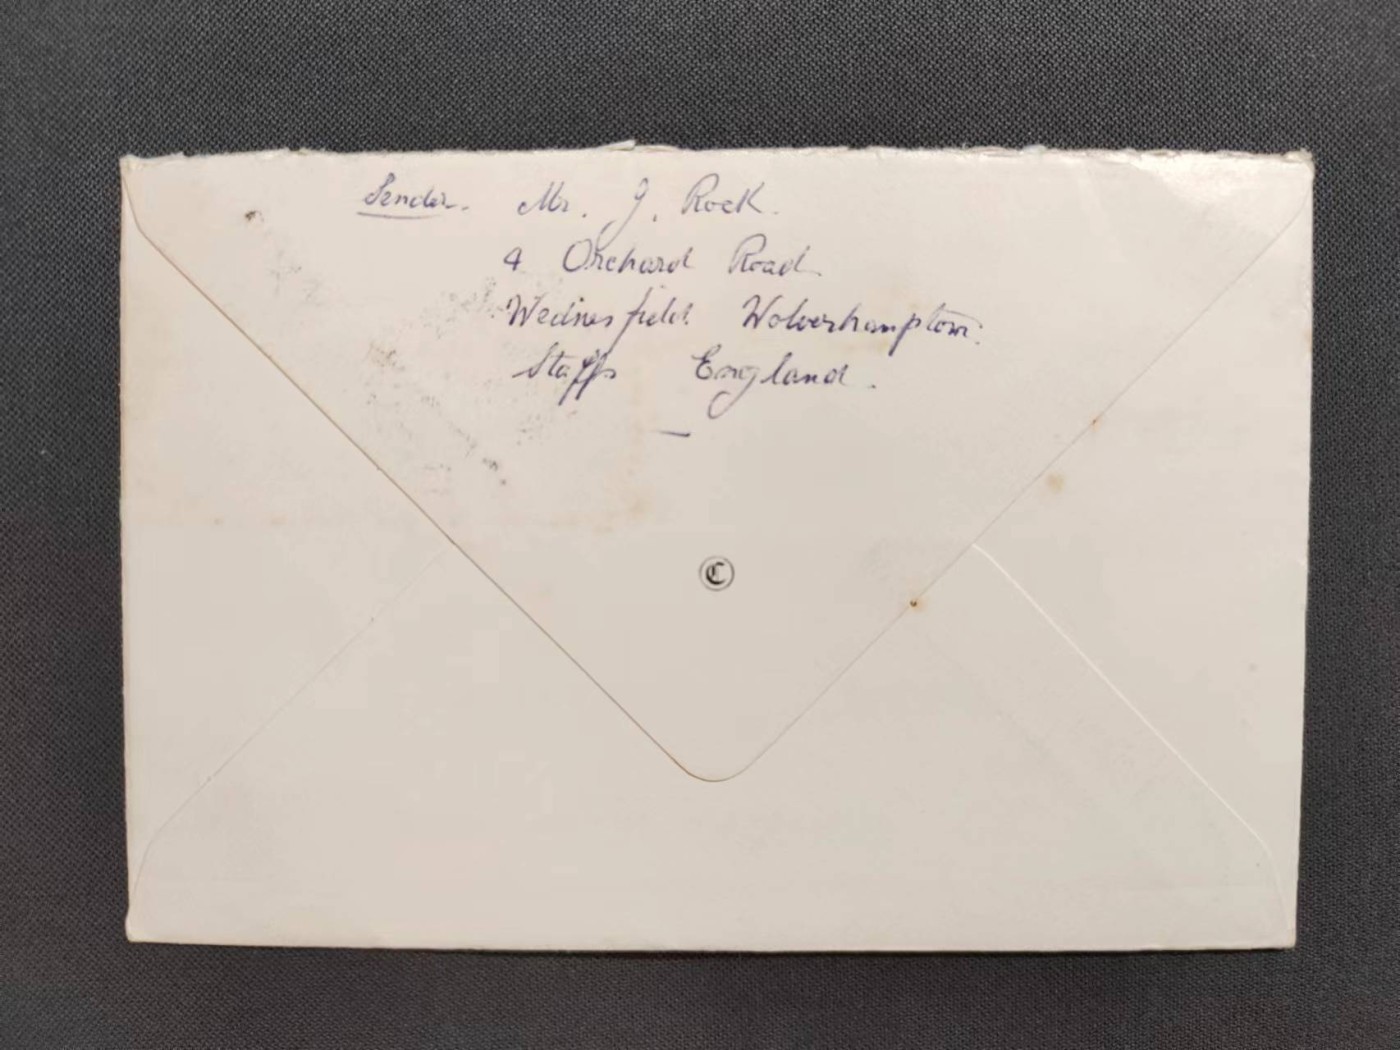 Sender. Mr. J. Rock.
4 Orchard Road
Wednesfield. Wolverhampton.
Staffs England.
C